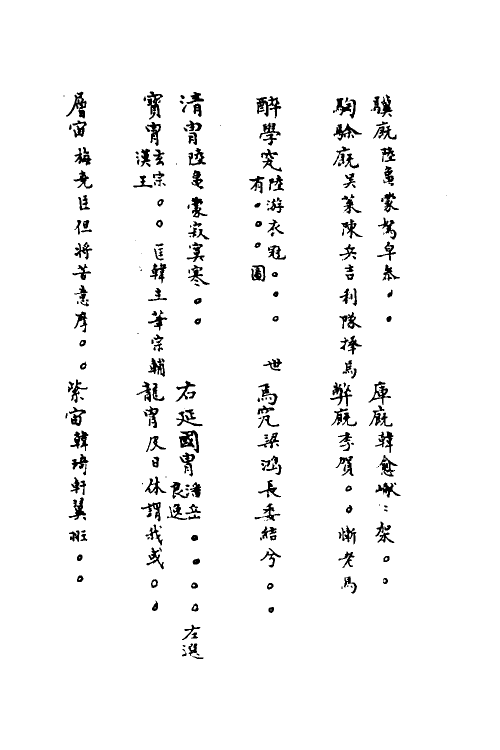 驥廐陸龜蒙駕皁參。。庫廐韓愈㠑〻架。。
駒駼廐吳萊陳兵吉利隊擇馬弊廐李賀。。慚老馬
醉學究陸游衣冠。。。有。。。圖世馬究梁鴻長委結兮。。
清胄陸龜蒙寂寞寒。。右延國胄潘岳良選。。。。左選
寶胄玄宗漢王。。匡韓主華宗輔龍胄皮日休謂我或。。
層宙梅堯臣但將苦意摩。。紫宙韓琦軒翼班。。